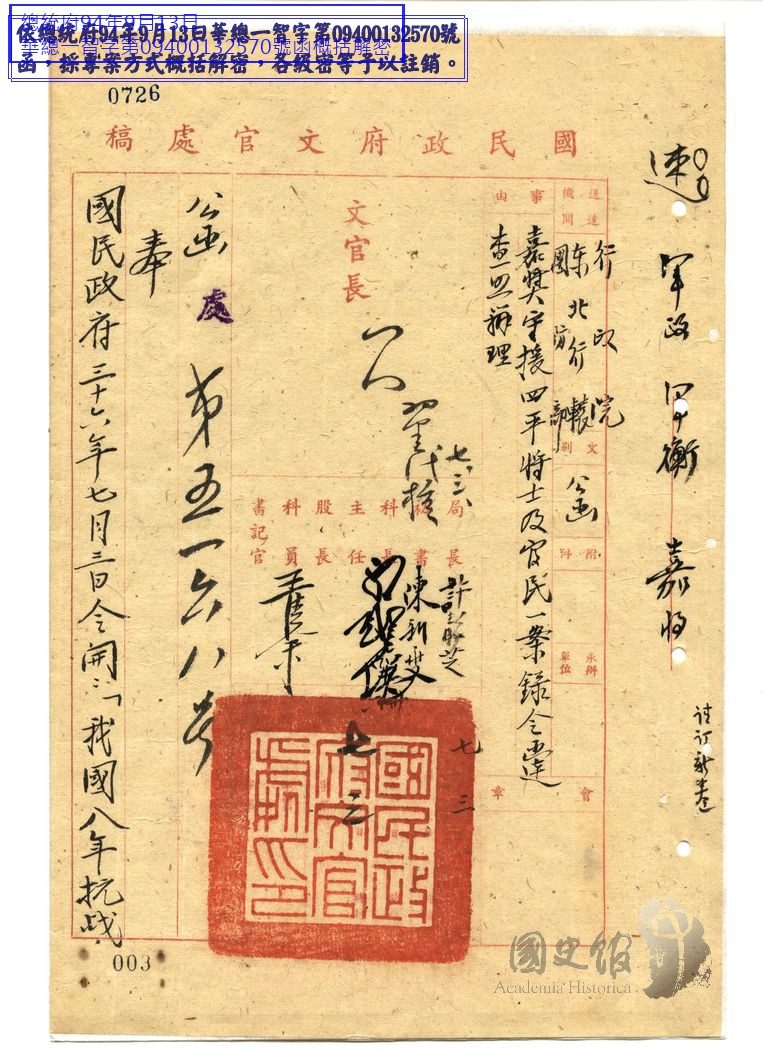 總統府94年9月13日
華總一智字第09400132570號函概括解密
依總統府94年9月13日華總一智字第09400132570號
函，採專案方式概括解密，各級密等予以註銷。
0726
國民政府文官處稿
速
軍政 軍衡 嘉將
送達機關
行政院
東北行轅
事由
嘉獎守援四平將士及官民一案錄令函達
查照辦理
文別
公函
附件
承辦單位
會章
文官長
代核
七.三
局長
秘書
科長
主任
股長
科員
書記官
許
陳
七
三
七
三
公函
處
第五一六八號
奉
國民政府三十六年七月三日令開：「我國八年抗战，
國民政府文官處印
003
國史館
Academia Historica